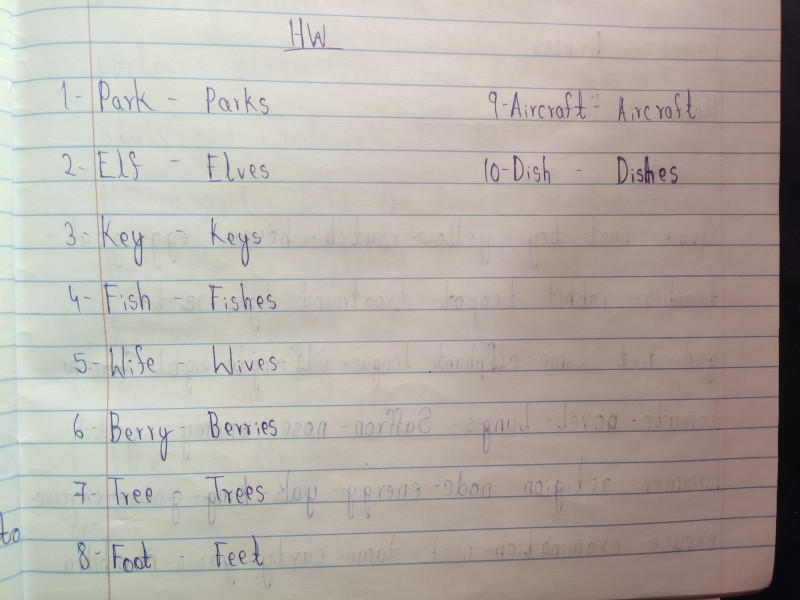 HW
1- Park - Parks
2- Elf - Elves
3- Key - Keys
4- Fish - Fishes
5- Wife - Wives
6- Berry - Berries
7- Tree - Trees
8- Foot - Feet
9- Aircraft - Aircraft
10- Dish - Dishes
to